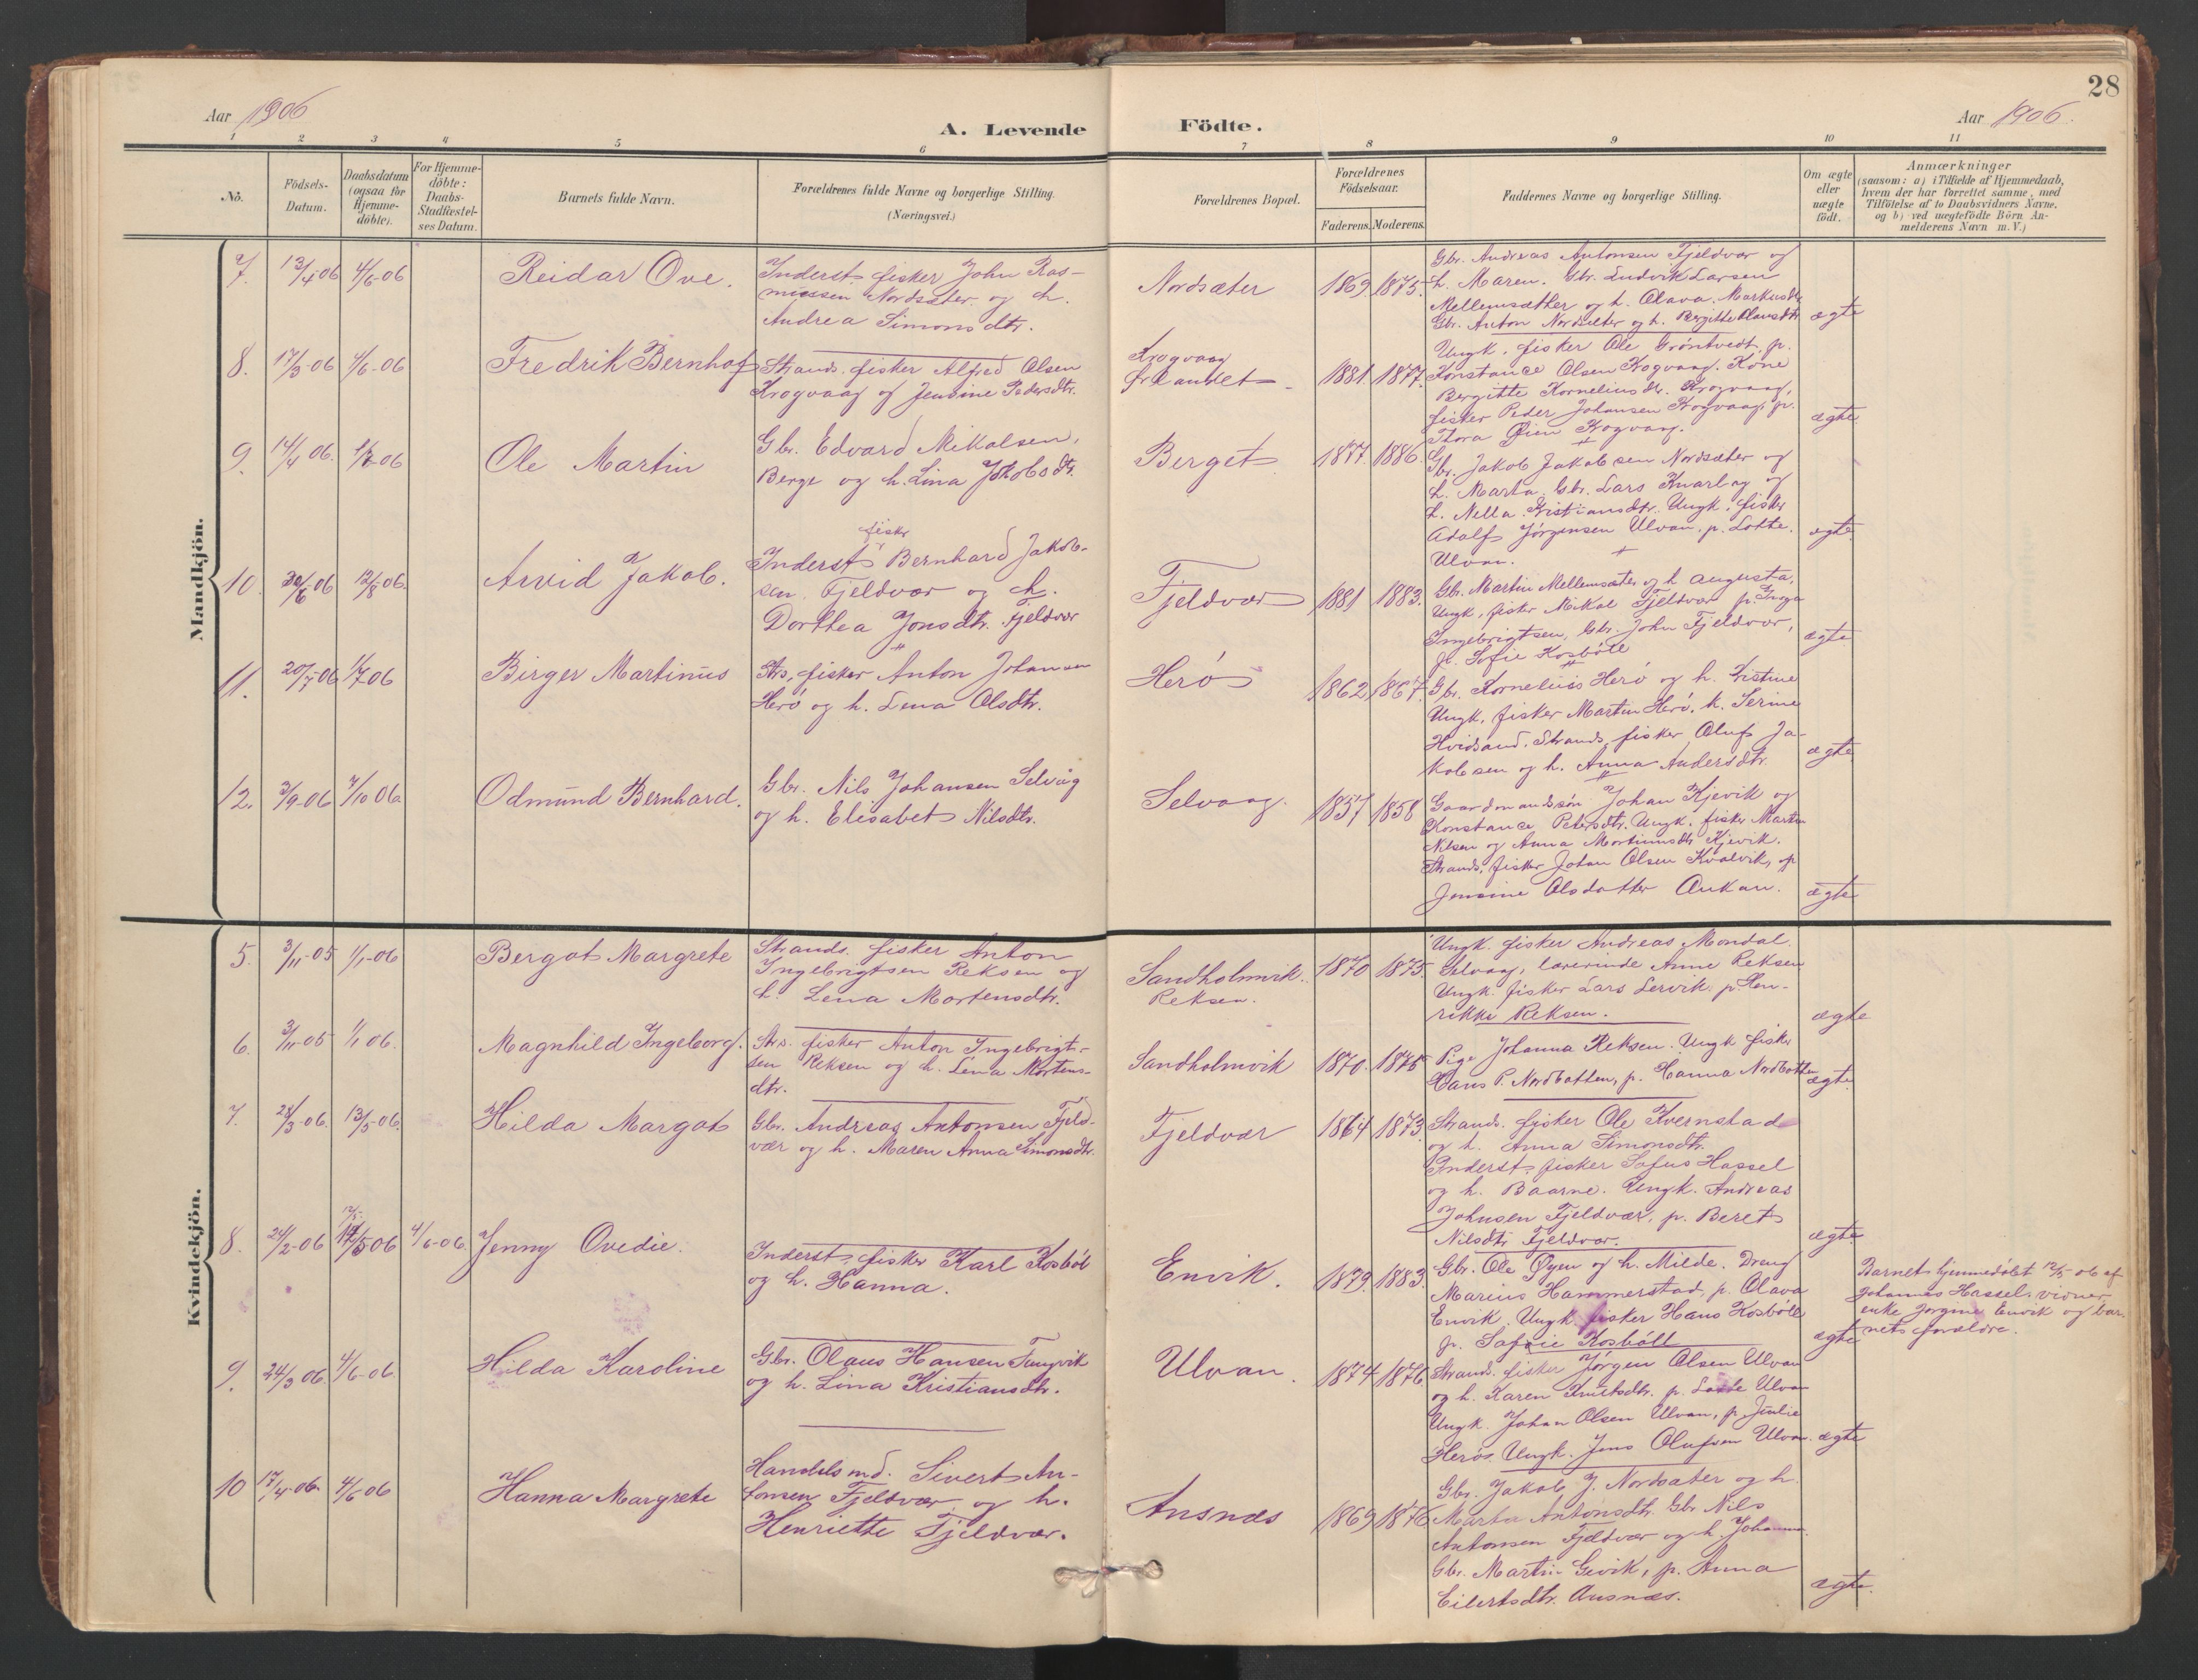 28
Aar 1906
A. Levende Födte.
Aar 1906.
1 2 3 4 5 6 7 8 9 10 11
No.
Födsels-
Datum.
Daabsdatum
(ogsaa for
Hjemme-
döbte).
For Hjemme-
döbte:
Daabs-
Stadfæstel-
ses Datum.
Barnets fulde Navn.
Forældrenes fulde Navne og borgerlige Stilling.
(Næringsvei.)
Forældrenes Bopæl.
Forældrenes
Födselsaar.
Faderens. Moderens.
Faddernes Navne og borgerlige Stilling.
Om ægte
eller
uægte
födt.
Anmærkninger
(saasom: a) i Tilfælde af Hjemmedaab,
hvem der har forrettet samme, med
Tilföielse af to Daabsvidners Navne,
og b) ved uægtefödte Börn An-
melderens Navn m. V.)
Mandkjön.
7. 13/4 06 4/6-06 Reidar Ove.
Inderst. fisker John Ras-
mussen Nordsæter og h.
Andrea Simonsdtr.
Nordsæter 1869 1875.
Gbr. Andreas Antonsen Fjeldvær og
h. Maren. Gbr. Ludvik Larsen
Mellemsæther og h. Olava Markusdtr
Gbr. Anton Nordsæter og h. Bergitte Olausdtr
ægte
8. 17/3-06 4/6-06 Fredrik Bernhof
Strands. fisker Alfred Olsen
Krogvaag og Jensine Pedersdtr.
Krogvaag
1881. 1877.
Ungk. fisker Ole Grøntvedt, p.
Konstance Olsen Krogvaag. Kone
Bergitte Korneliusdtr. Krogvaag,
fisker Peder Johansen Krogvaag, p.
Thora Øien Krogvaag.
ægte
9. 14/4 06. Ole Martin
Gbr. Edvard Mikalsen,
Berge og h. Lina Jakobsdtr.
Berget 1877. 1886.
Gbr. Jakob Jakobsen Nordsæter og
h. Marta. Gbr. Lars Kvarlag og
h. Nella Kristiansdtr. Ungk. fisker
Adolf Jørgensen Ulvan. p. Lotte
Ulvan.
ægte
10. 30/6 06 12/8 06. Arvid Jakob.
fisker
Inderst Bernhard Jakob-
sen Fjeldvær og h.
Dorthea Jonsdtr. Fjeldvær
Fjeldvær 1881 1883.
Gbr. Martin Mellemsæter og h Augusta,
Ungk. fisker Mikal Fjeldvær p. Inga
Ingebrigtsen, Gbr. John Fjeldvær,
p. Sofie Kosbøll
ægte
11. Birger Martinus
Strs, fisker Anton Johansen
Herø og h. Lena Olsdtr.
Herø 1862 1867.
Gbr. Kornelius Herø og h. Kristine
Ungk. fisker Martin Herø, k. Serine
Hvidsand. Strands, fisker Oluf Ja-
kobsen og h. Anna Andersdtr.
ægte
12. 3/9-06 7/10 06. Odmund Bernhard.
Gbr. Nils Johansen Selvåg
og h. Elisabet Nilsdtr.
Selvaag. 1857 1858
Gaardmandssøn Johan Kjevik og
Konstance Petersdtr. Ungk. fisker Martin
Nilsen og Anna Martinusdtr Kjevik.
Strands, fisker Johan Olsen Kvalvik, p
Jensine Olsdatter Aukan.
ægte
Kvindekjön.
5. 3/11-05 1/1-06 Bergat Margrete
Strands. fisker Anton
Ingebrigtsen Reksen og
h. Lena Mortensdtr.
Sandholmvik.
Reksen.
1870 1875.
Ungk. fisker Andreas Mondal
Selvaag, lærerinde Anne Reksen
Ungk. fisker Lars Lervik. p. Hen-
rikke Reksen.
ægte
6. 3/11-05 1/1 06. Magnhild Ingeborg.
Strs. fisker Anton Ingebrigt-
sen Reksen og h. Lena Mortens-
dtr.
Sandholmvik 1870. 1875
Pige Johanna Reksen. Ungk fisker
Hans P. Nordbotten, p. Hanna Nordbotten
ægte
7. 28/3-06. 13/5-06. Hilda Margot
Gbr. Andreas Antonsen Fjeld-
vær og h. Maren Anna Simonsdtr.
Fjeldvær 1864 1873.
Strands. fisker Ole Kvernstad
og h. Anna Simonsdtr.
Inderst. fisker Sofus Hassel
og h. Baarne. Ungk. Andreas
Johnsen Fjeldvær, p. Beret
Nilsdtr Fjeldvær.
ægte
8. 24/2-06 4/6-06. Jenny Ovedie.
Inderst. fisker Karl Kosbøl
og h. Hanna.
Envik. 1879. 1883.
Gbr. Ole Øyen og h. Milde. Dreng
Marius Hammerstad, p. Olava
Envik. Ungk. fisker Hans Kosbøll
p. Sofie Kosbøll
ægte
Barnet hjemmedøbt 12/5-06 af
Johannes Hassel. vidner
enke Jørgine Envik og bar-
nets forældre.
9. 24/3 06. 4/6-06. Hilda Karoline
Gbr. Olaus Hansen
og h. Lina Kristiansdtr.
Ulvan. 1874 1876.
Strands. fisker Jørgen Olsen Ulvan
og h. Karen Knutsdtr. p. Lotte Ulvan
Ungk. Johan Olsen Ulvan, p. Julie
Herøs. Ungk. Jens Olufsen Ulvan.
ægte
10 17/4-06. 4/6 06 Hanna Margrete
Handelsmd. Sivert An-
tonsen Fjeldvær og h.
Henriette Fjeldvær.
Ansnæs 1869 1876
Gbr. Jakob J. Nordsæter og h.
Marta Antonsdtr. Gbr Nils
Antonsen Fjeldvær og h. Johanna
Gbr. Martin Gevik, p. Anna
Eilertsdtr. Ansnæs.
ægte.